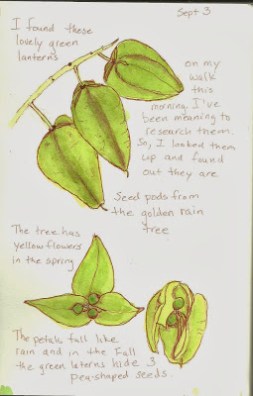 Sept 3
I found these
lovely green
lanterns
on my
walk
this
morning. I've
been meaning to
research them.
So, I looked them
up and found
out they are
Seed pods from
the golden rain
tree
The tree has
yellow flowers
in the spring
The petals fall like
rain and in the fall
the green laterns hide 3
pea-shaped seeds.